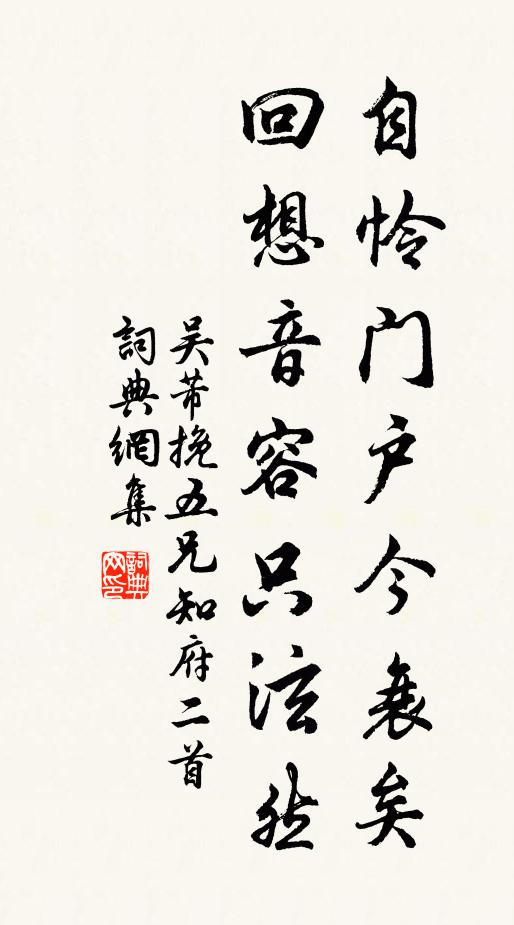 自怜门户今衰矣
回想音容只泫然
吴芾挽五兄知府二首
詞典網集
詞典网印